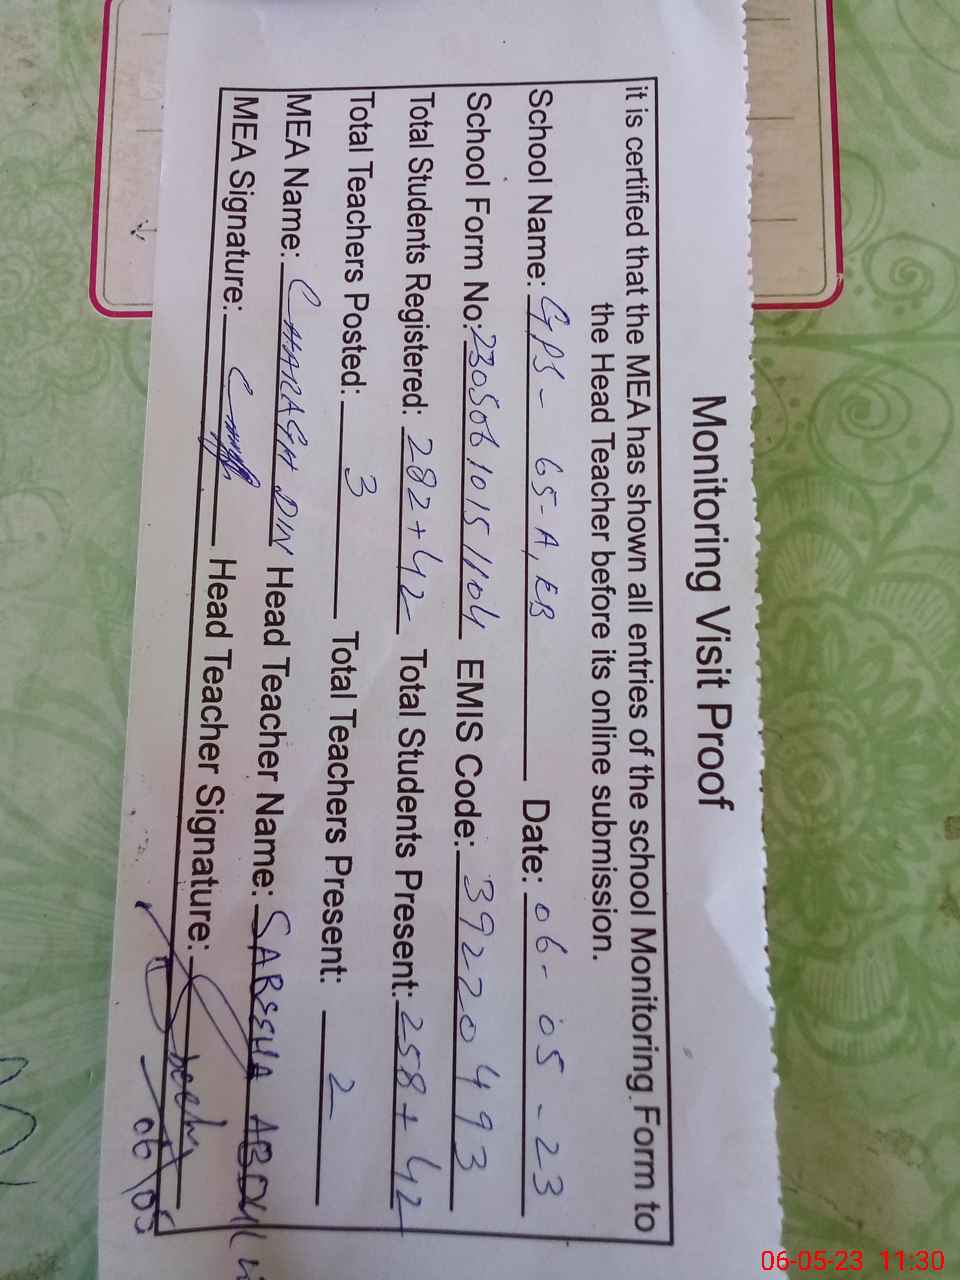 Monitoring Visit Proof
it is certified that the MEA has shown all entries of the school Monitoring Form to
the Head Teacher before its online submission.
School Name: GPS- 65-A, EB Date: 06-05-23
School Form No: 23050610151104 EMIS Code: 39220493
Total Students Registered: 282+42 Total Students Present: 258+42
Total Teachers Posted: 3 Total Teachers Present: 2
MEA Name: CHARAGH DIN Head Teacher Name:
MEA Signature: Head Teacher Signature:
06/05
06-05-23 11:30